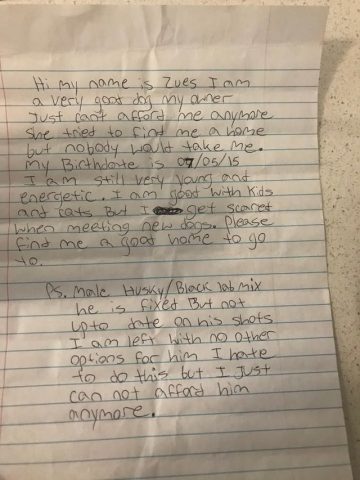 Hi my name is Zues I am
a very good dog my owner
Just can't afford me anymore
she tried to find me a home
but nobody would take me.
my Birthdate is 07/05/15
I am still very young and
energetic. I am good with kids
and cats But I get scared
when meeting new dogs. Please
find me a good home to go
to.
Ps. Male Husky/Black lab mix
he is fixed But not
upto date on his shots
I am left with no other
options for him I hate
to do this but I Just
can not afford him
anymore.